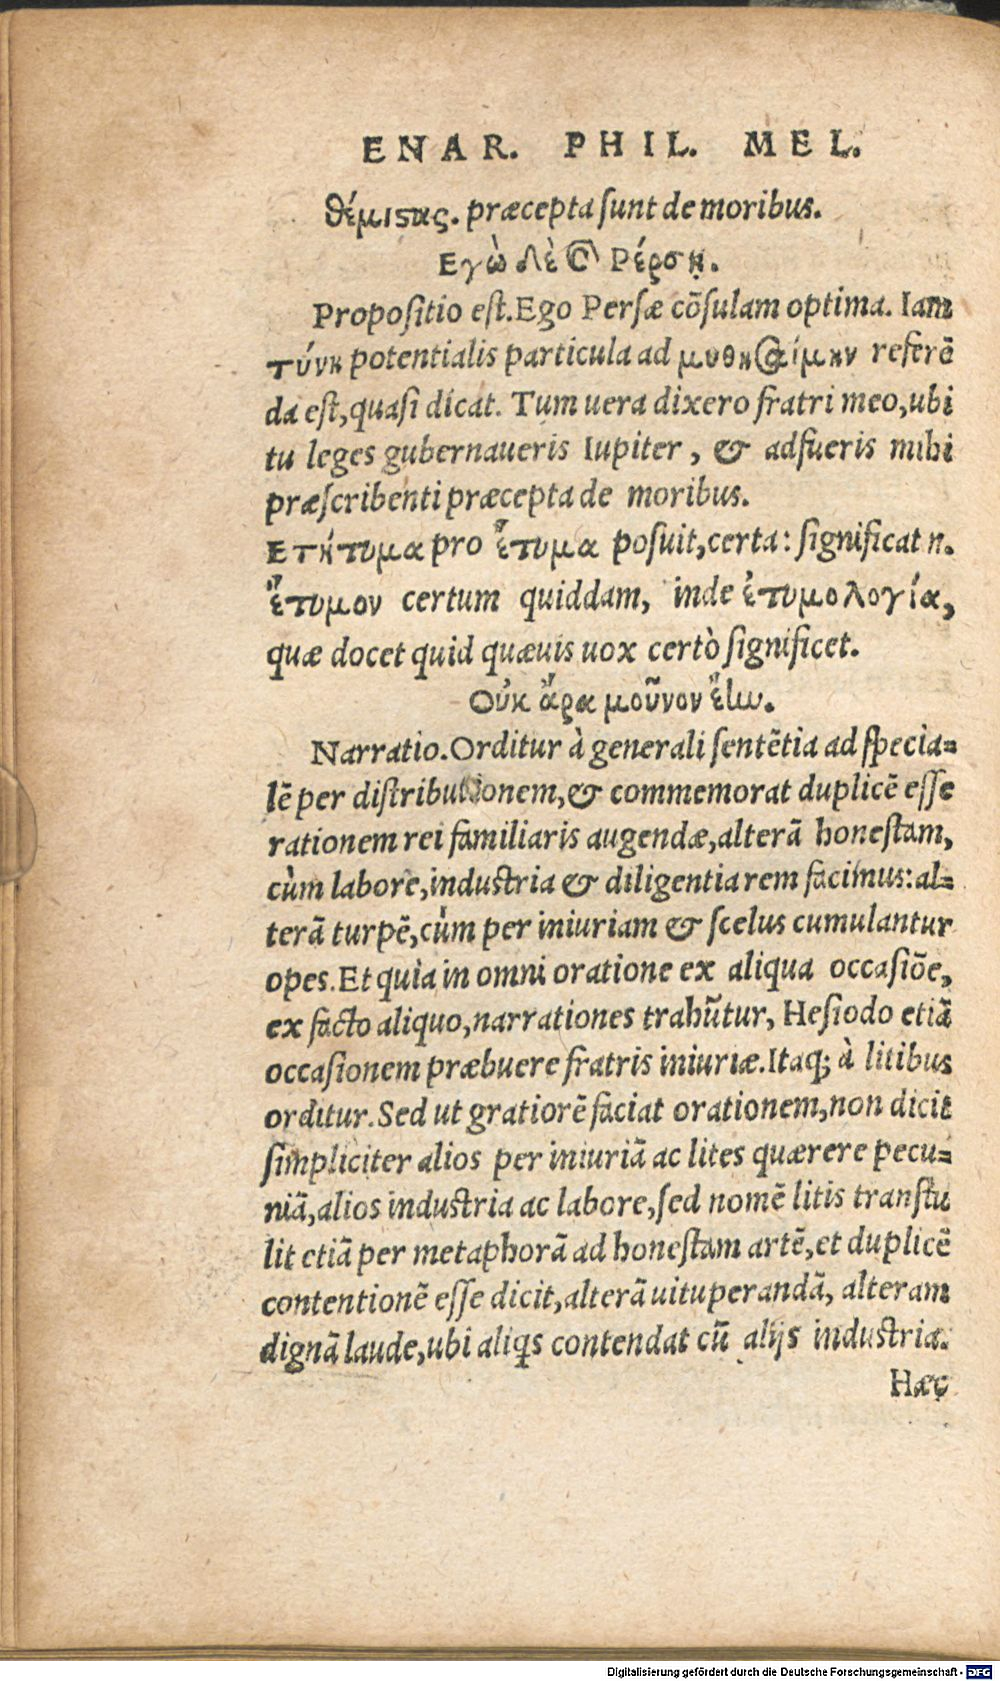 ENAR. PHIL. MEL.
θέμιϛας. præcepta sunt de moribus.
Εγὼ δὲ Πέρση.
Propositio est. Ego Persæ cõsulam optima. Iam
τύνη potentialis particula ad μυθησαίμην referẽ
da est, quasi dicat. Tum uera dixero fratri meo, ubi
tu leges gubernaueris Iupiter, & adfueris mihi
præscribenti præcepta de moribus.
Ετήτυμα pro ἔτυμα posuit, certa: significat n.
ἔτυμον certum quiddam, inde ἐτυμολογία,
quæ docet quid quæuis uox certò significet.
Οὐκ ἄρα μοῦνον ἔην.
Narratio. Orditur à generali sentẽtia ad specia=
lẽ per distributionem, & commemorat duplicẽ esse
rationem rei familiaris augendæ, alterã honestam,
cùm labore, industria & diligentia rem facimus: al=
terã turpẽ, cùm per iniuriam & scelus cumulantur
opes. Et quia in omni oratione ex aliqua occasiõe,
ex facto aliquo, narrationes trahũtur, Hesiodo etiã
occasionem præbuere fratris iniuriæ. Itaq; à litibus
orditur. Sed ut gratiorẽ faciat orationem, non dicit
simpliciter alios per iniuriã ac lites quærere pecu=
niã, alios industria ac labore, sed nomẽ litis transtu
lit etiã per metaphorã ad honestam artẽ, et duplicẽ
contentionẽ esse dicit, alterã uituperandã, alteram
dignã laude, ubi aliqs contendat cũ alijs industria.
Hæc
Digitalisierung gefördert durch die Deutsche Forschungsgemeinschaft - DFG